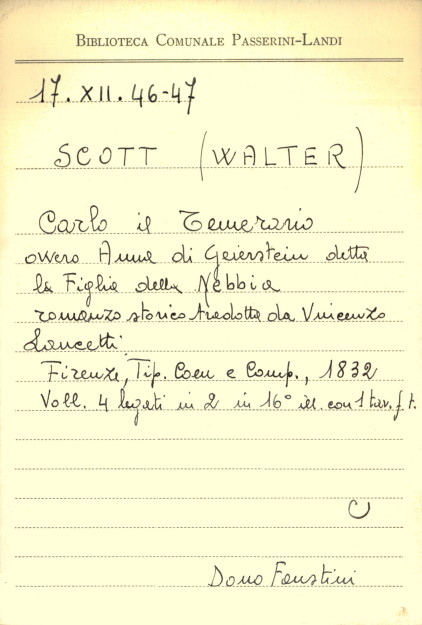 BIBLIOTECA COMUNALE PASSERINI-LANDI
17. XII. 46-47
SCOTT (WALTER)
Carlo il Temerario
ovvero Anna di Geierstein detta
la Figlia della Nebbia
romanzo storico tradotto da Vincenzo
Lancetti.
Firenze, Tip. Coen e Comp., 1832
Voll. 4 legati in 2 in 16° ill. con 1 tav. f. t.
C
Dono Faustini